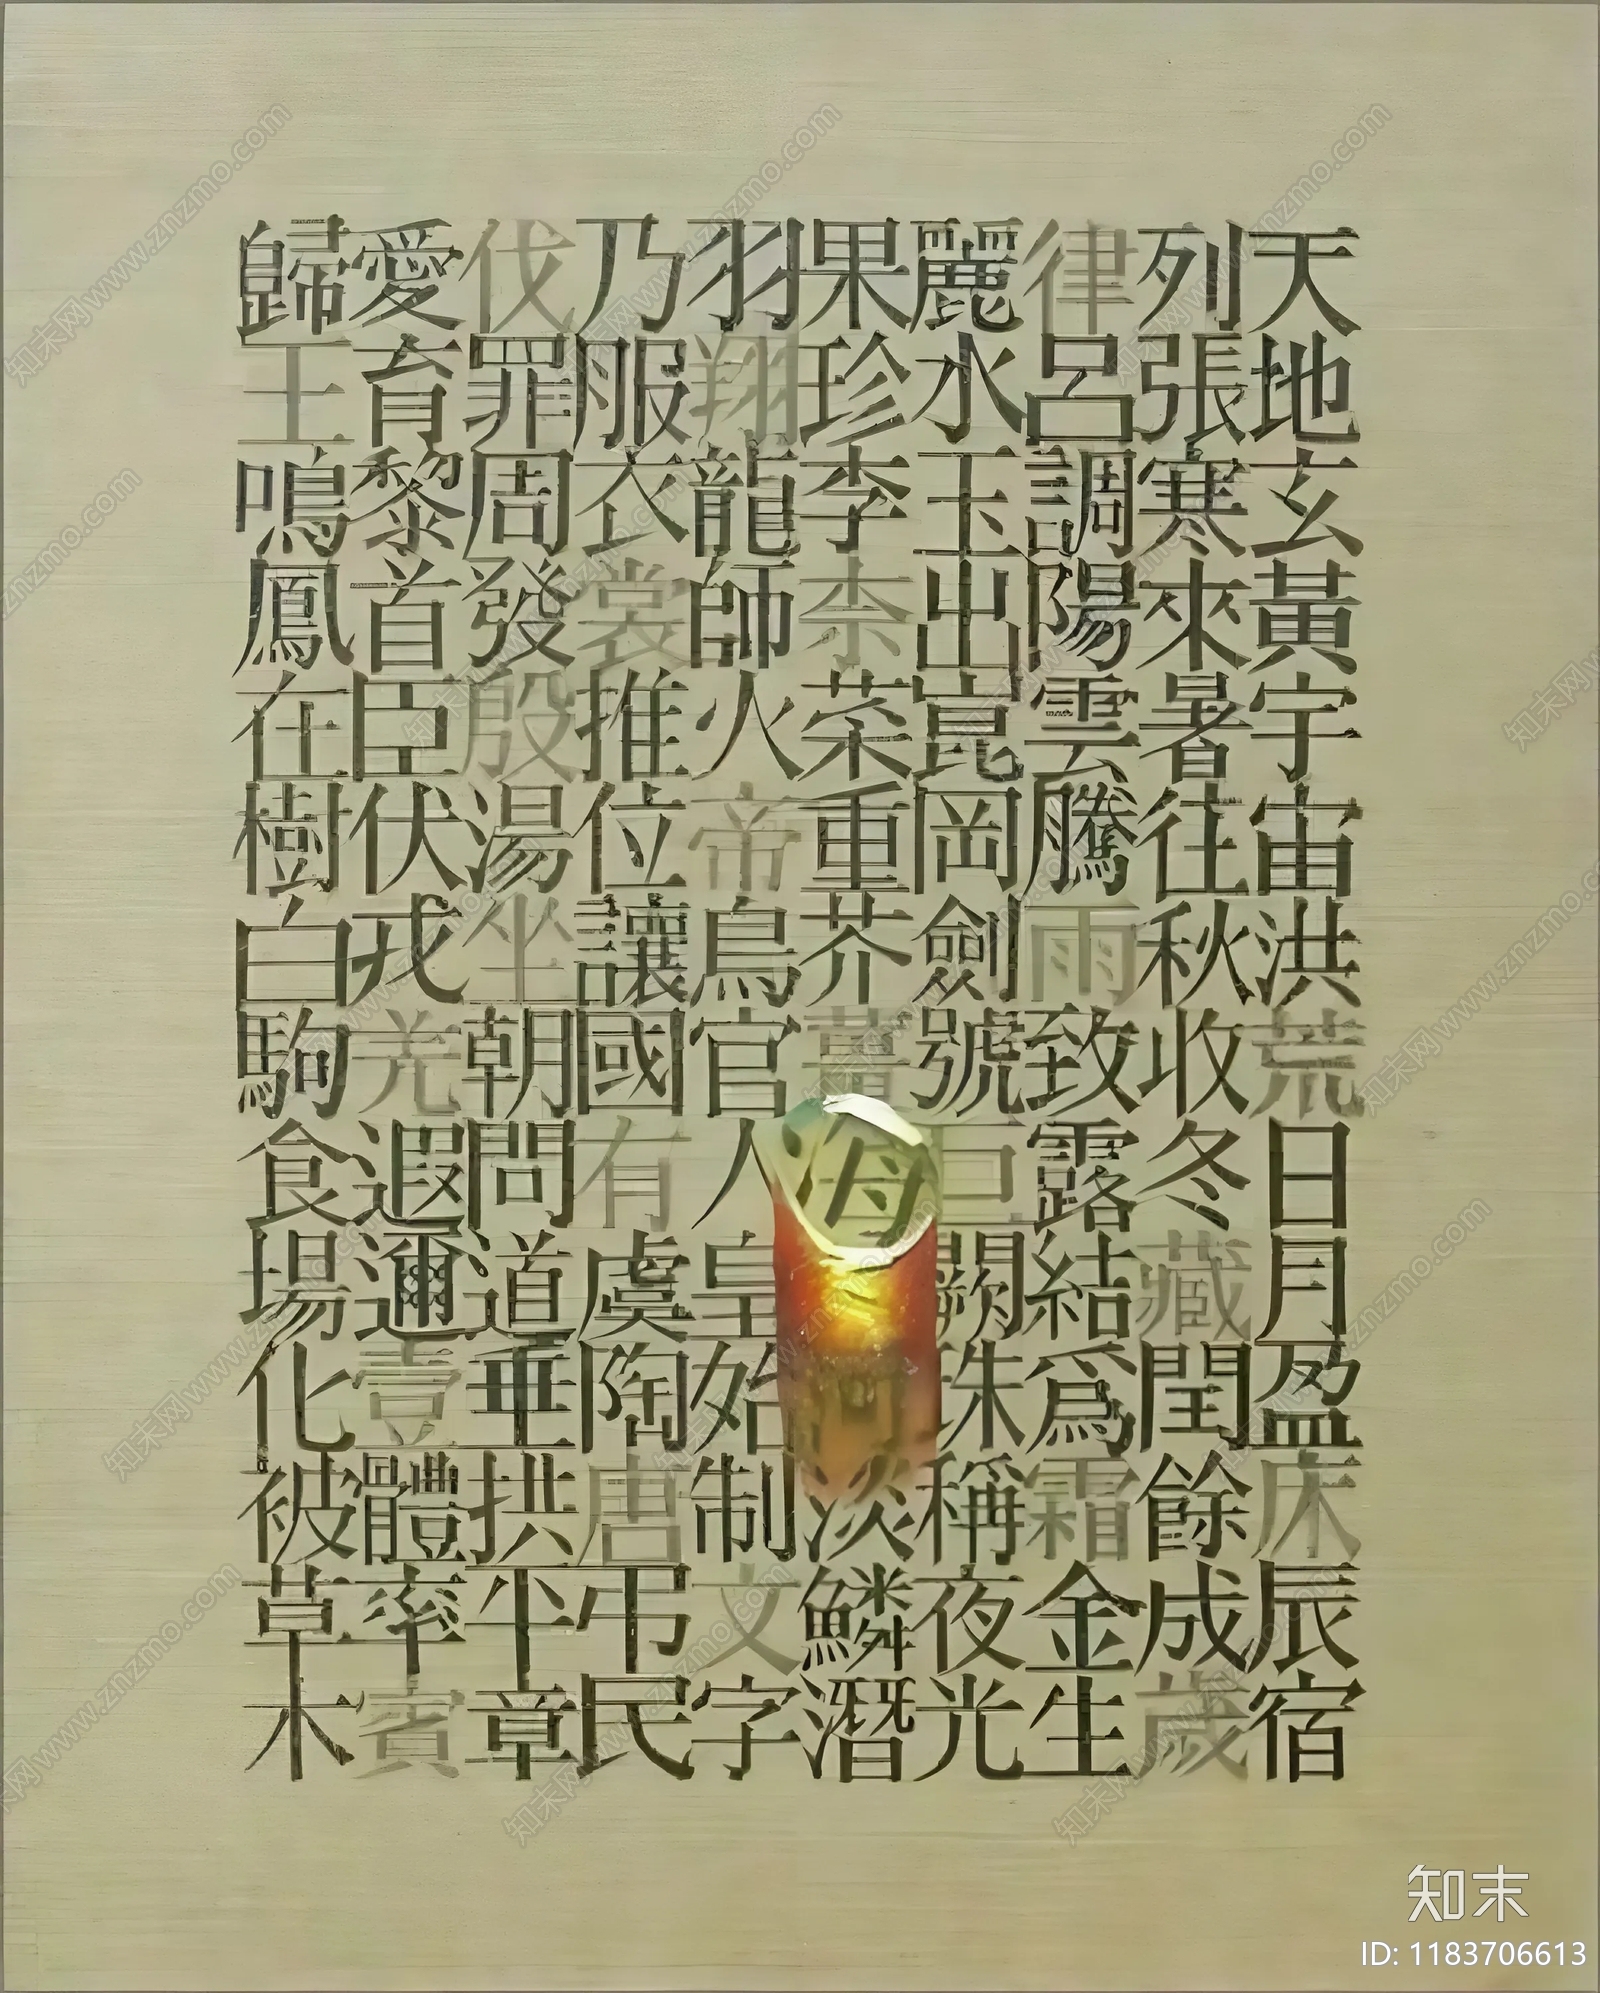 天地玄黃宇宙洪荒日月盈床辰宿
列張寒來暑往秋收冬藏閏餘成歲
律呂調陽雲騰雨致露結爲霜金生
麗水玉出崑岡劍號巨闕珠稱夜光
果珍李柰菜重芥薑海淡鱗潛
羽翔龍師火帝鳥官人皇始制文字
乃服衣裳推位讓國有虞陶唐弔民
伐罪周發殷湯坐朝問道垂拱平章
愛育黎首臣伏戎羌遐邇壹體率賓
歸王鳴鳳在樹白駒食場化被草木
知末网www.znzmo.com
知末
ID: 1183706613